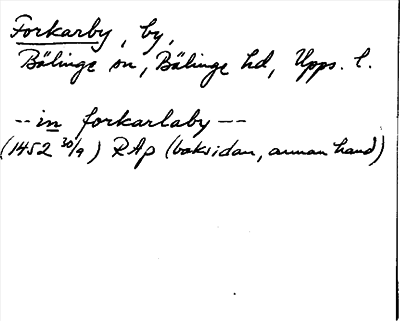 Forkarby, by,
Bälinge sn, Bälinge hd, Upps. l.
-- in forkarlaby --
(1452 30/9) RAp (baksidan, annan hand)